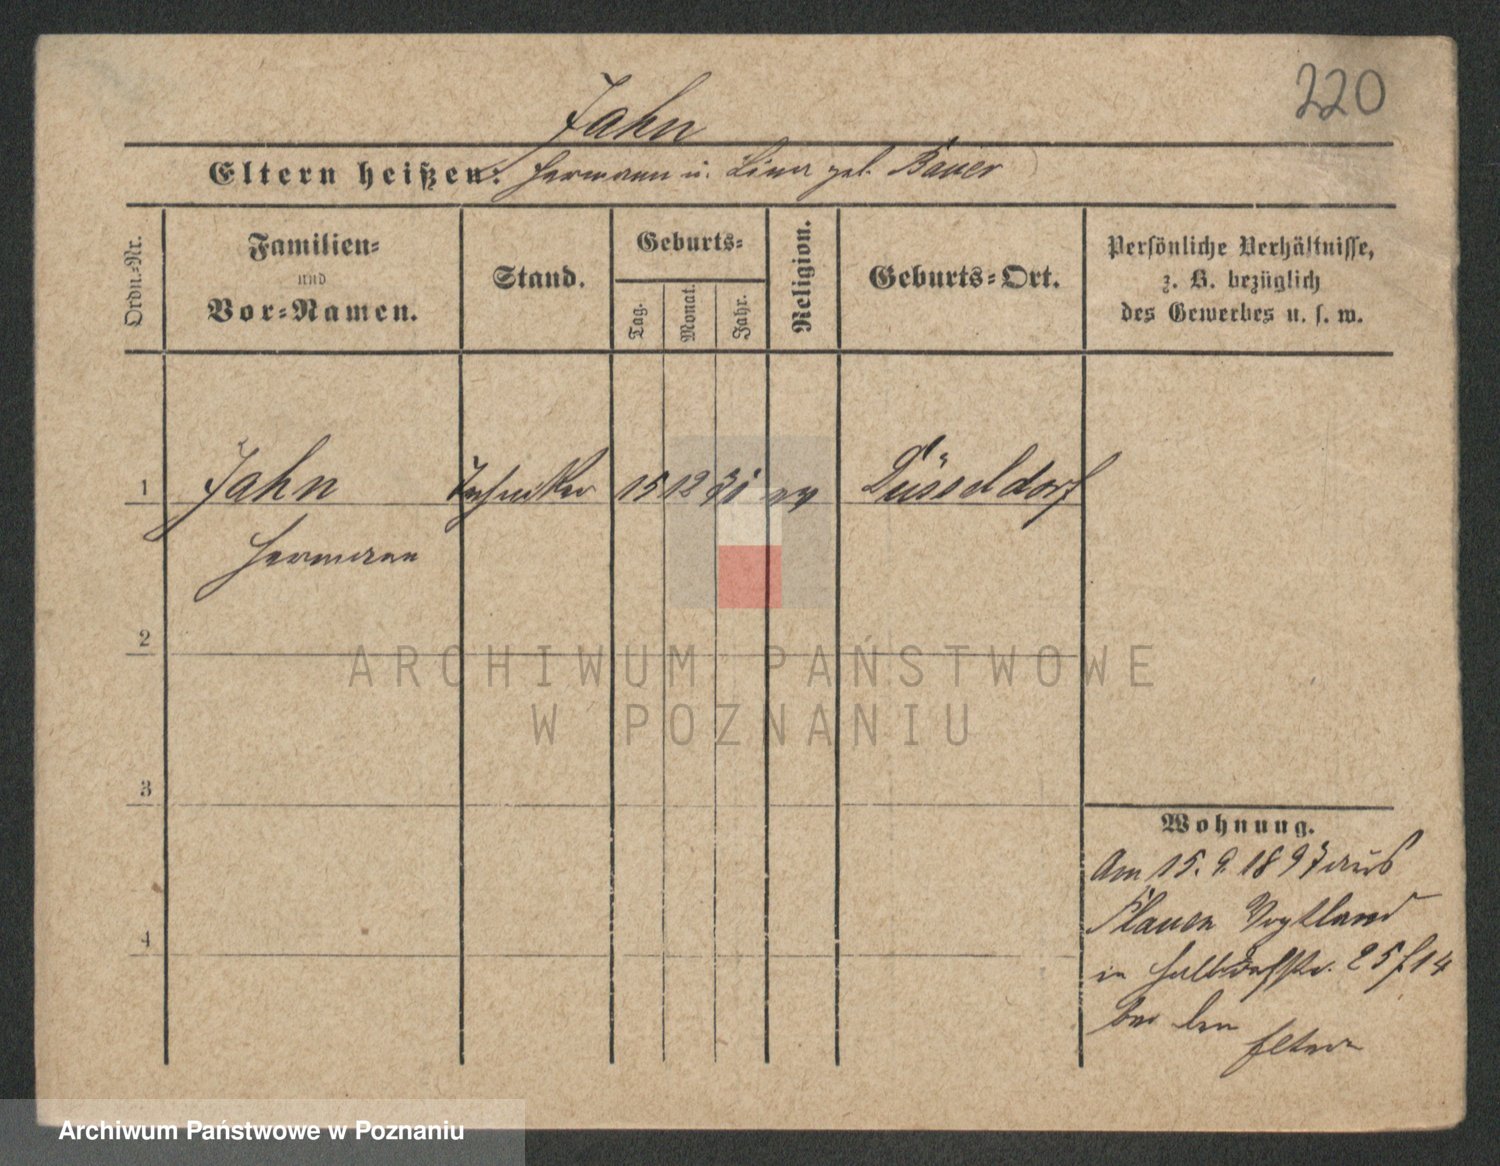 220
Jahn
Eltern heißen: Hermann u. Lina geb. Bauer
Ordn.-Nr.
Familien-
und
Vor-Namen.
Stand.
Geburts-
Tag.
Monat.
Jahr.
Religion.
Geburts-Ort.
Persönliche Verhältnisse,
z. B. bezüglich
des Gewerbes u. s. w.
1 Jahn Techniker 15 12 ev Düsseldorf
Hermann
2
3
4
Wohnung.
Am 15. 9. 1897 aus
Plauen Vogtland
in Halbdorfstr. 25
Eltern
ARCHIWUM PAŃSTWOWE
W POZNANIU
Archiwum Państwowe w Poznaniu